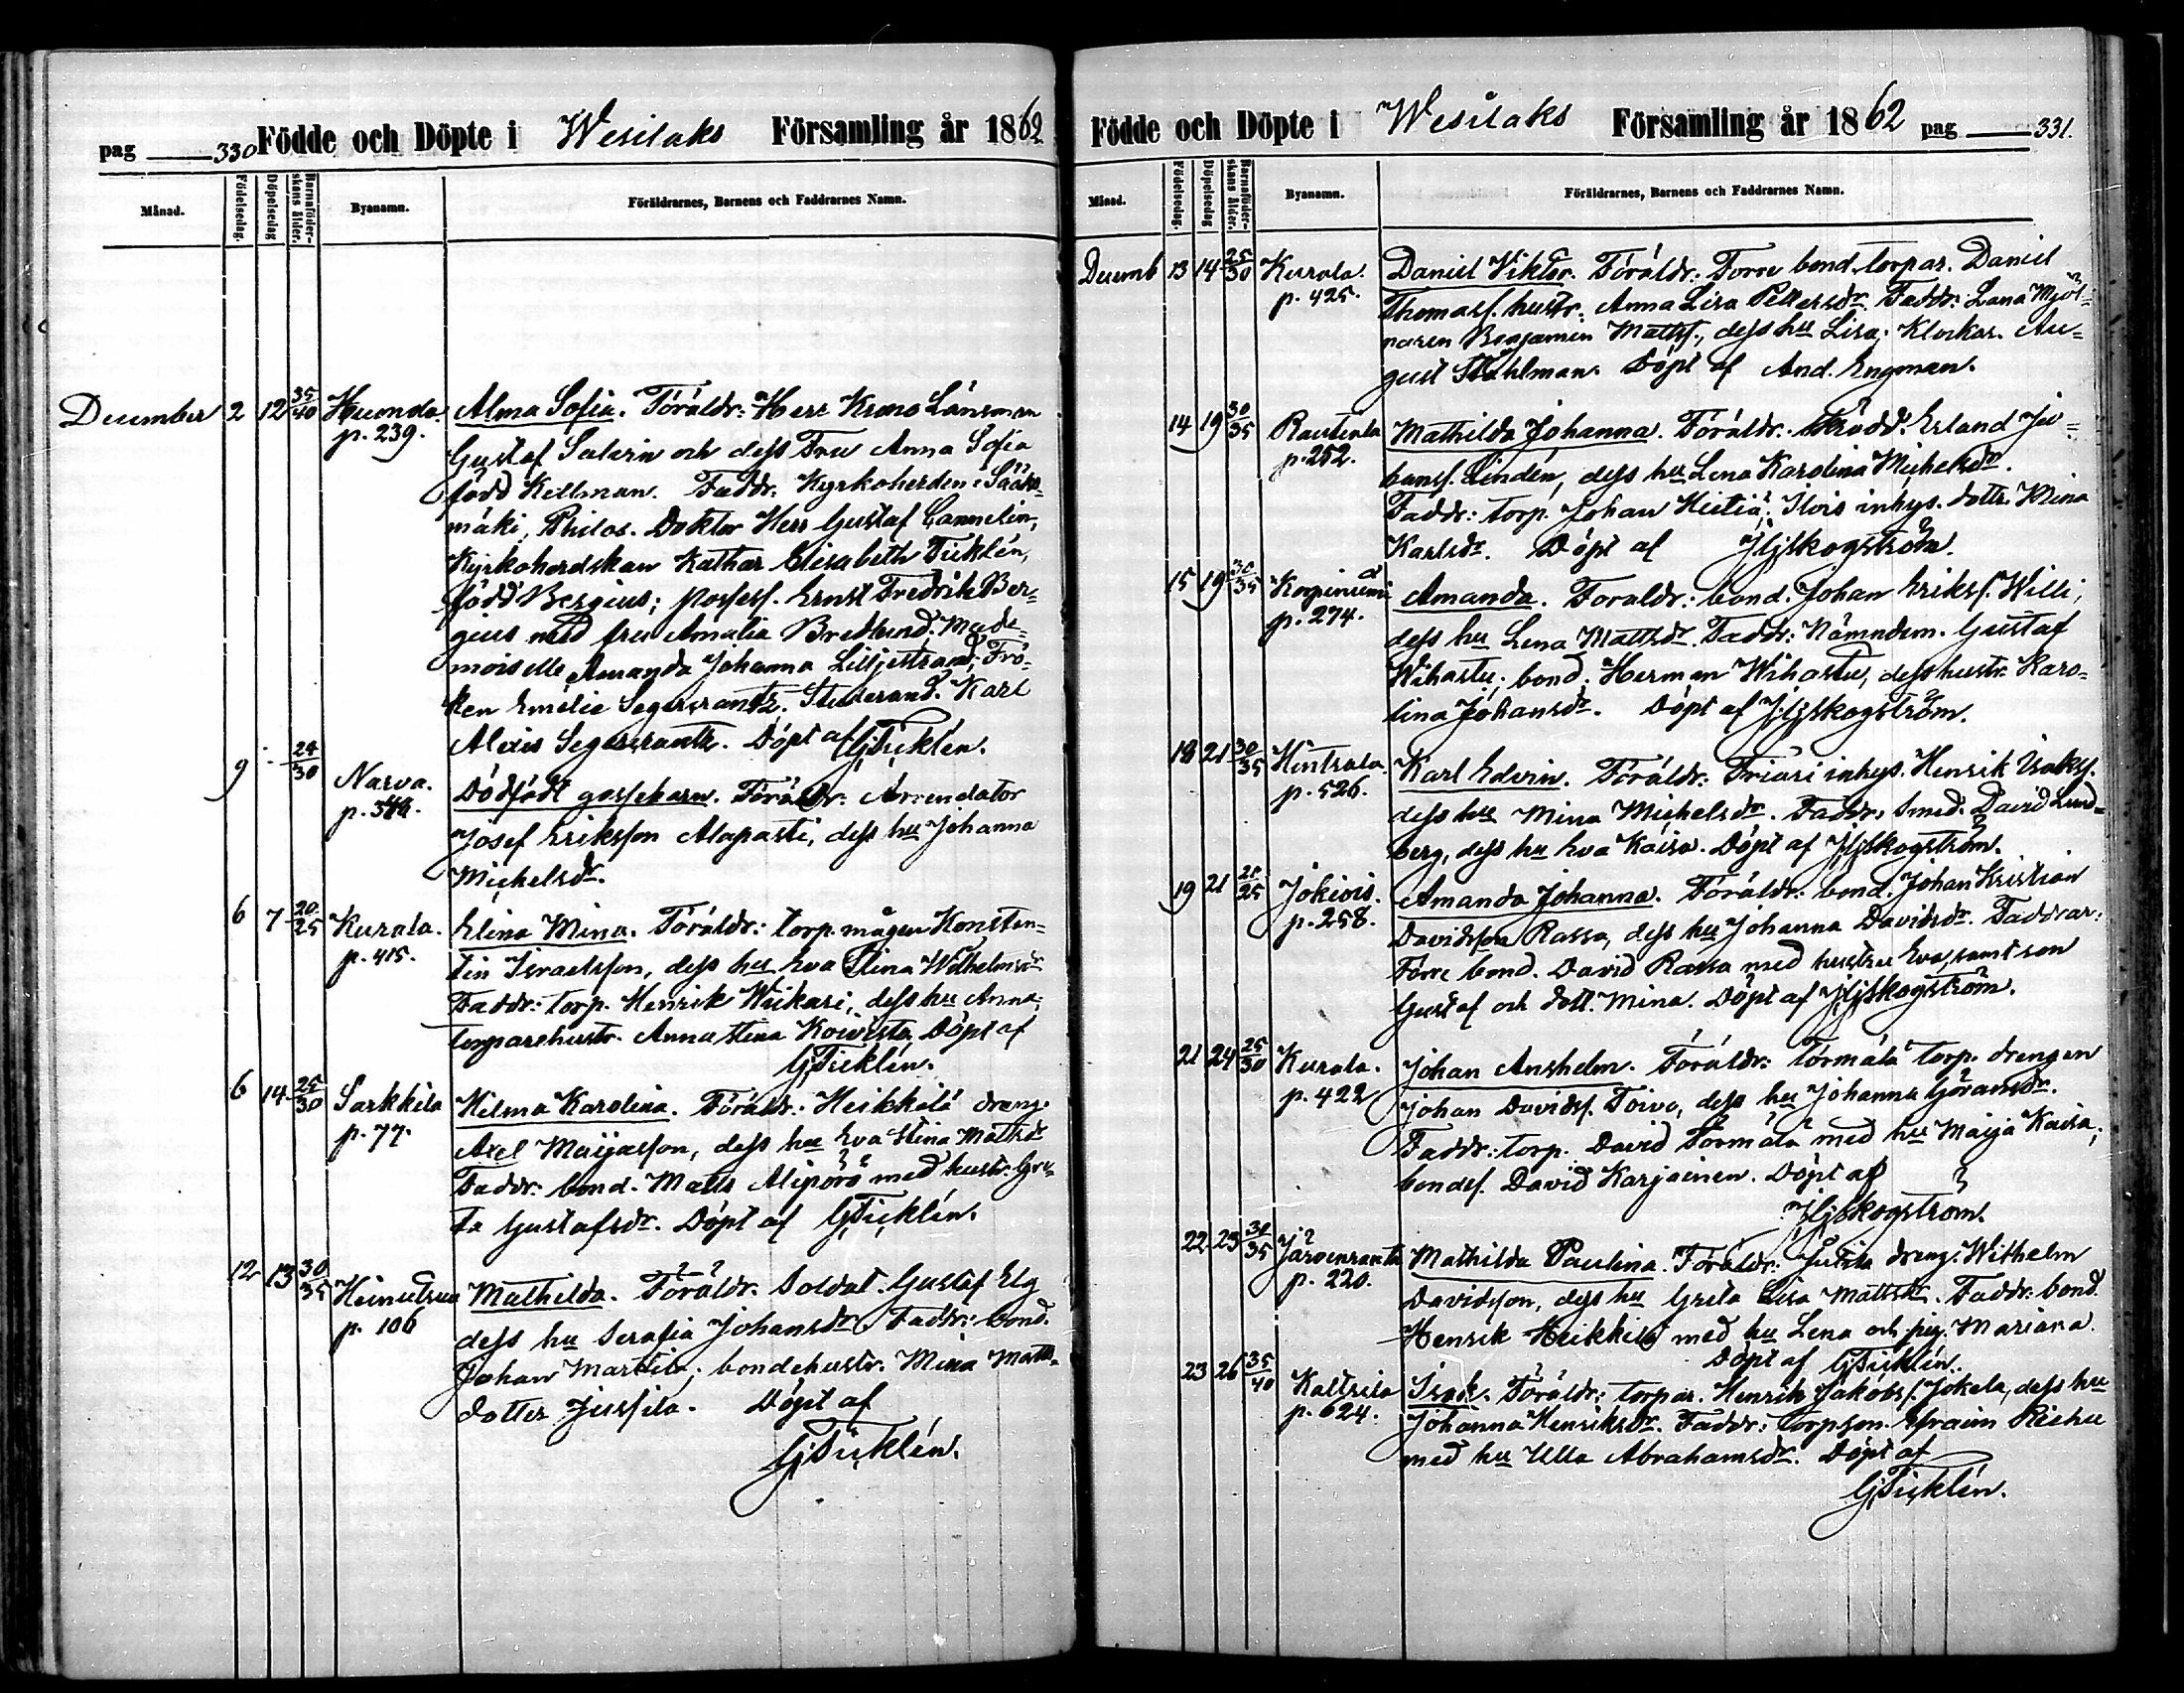 pag 330 Födde och Döpte i Wesilaks Församling år 1862
Månad. Födelsedag. Döpelsedag Barnaföderskans ålder. Byanamn. Föräldrarnes, Barnens och Faddrarnes Namn.
December 2 12 35/40 Huonda p. 239. Alma Sofia. Föräldr: Herr Krono Länsman
Gustaf Salvin och dess Fru Anna Sofia
född Kellman. Faddr. Kyrkoherden i Sääks-
mäki, Philos. Doktor Herr Gustaf Cannelin,
Kyrkoherdskan Kathar Elisabeth Ticklén,
född Bergius; possess. Ernst Fredrik Ber-
gius med fru Amalia Bredlund; Made-
moiselle Amanda Johanna Liljestrand; Frö-
ken Emelie Segercrantz. Studerand. Karl
Alexis Segercrantz. Döpt af G Ticklén.
9 - 24/30 Narva. Dödfödt gossebarn. Föräldr. Arrendator
Josef Eriksson Alapasti, dess hu Johanna
Mickelsdr.
6 7 20/25 Kurala. p. 415. Elina Mina. Föräldr: torp. mågen Konstan-
tin Israelsson, dess hu Eva Stina Wilhelmsdr
Faddr: torp. Henrik Wiikari, dess hu Anna;
torparehustr. Anna Stina Koivisto. Döpt af
G Ticklén.
6 14 25/30 Sarkkila p. 77. Hilma Karolina. Föräldr: Heikkilä dreng.
Axel Maijasson, dess hu Eva Stina Mattsdr
Faddr: bond. Matts Aliporö med hustr. Gre-
ta Gustafsdr. Döpt af G Ticklén.
12 13 30/35 p. 106 Mathilda. Föräldr. Soldat. Gustaf Elg
dess hu Serafia Johansdr. Faddr: bond.
Johan Marttila; bondehustr. Mina Matts-
dotter Jussila. Döpt af
G Ticklén.
Födde och Döpte i Wesilaks Församling år 1862 pag 331.
Månad. Födelsedag. Döpelsedag Barnaföderskans ålder. Byanamn. Föräldrarnes, Barnens och Faddrarnes Namn.
Decemb 13 14 25/30 Kurala. p. 425. Daniel Viktor. Föräldr: Torre bond. torpar. Daniel
Thomass. hustr. Anna Lisa Pettersdr. Faddr: Lana Mjöl-
naren Benjamin Mattss., dess hu Lisa; Klockar. Au-
gust Ståhlman. Döpt af And. Engman.
14 19 30/35 Rautiala p. 252. Mathilda Johanna. Föräldr. Skrädd. Erland Ja-
kobss. Lindén, dess hu Lena Karolina Michelsdr.
Faddr: torp. Johan Hietiä; Ilois inhys. dottr. Mina
Karlsdr. Döpt af Hj Skogström.
15 19 30/35 Korpiniemi p. 274. Amanda. Foraldr: bond. Johan Erikss. Willi,
dess hu Lena Mattsdr. Faddr: Nämndem. Gustaf
Wihastu; bond. Herman Wihastu, dess hustr. Karo-
lina Johansdr. Döpt af Hj Skogström.
18 21 30/35 Hintsala. p. 526. Karl Edvin. Föräldr: Friäri inhys. Henrik Isakss.
dess hu Mina Michelsdr. Faddr: Smed. David Lind-
berg, dess hu Eva Kaisa. Döpt af Hj Skogström.
19 21 /25 Jokiois. p. 258. Amanda Johanna. Föräldr: bond. Johan Kristian
Davidsson Rassa, dess hu Johanna Davidsdr. Faddrar:
Förre bond. David Rassa med hustru Eva, samt son
Gustaf och dott. Mina. Döpt af Hj Skogström.
21 24 25/30 Kurala. p. 422 Johan Anshelm. Föräldr: Törmälä torp. drengen
Johan Davidss. Toivo, dess hu Johanna Göransdr.
Faddr: torp. David Törmälä med hu Maija Kaisa;
bondes. David Karjainen. Döpt af
Hj Skogström.
22 23 30/35 Järvenranta p. 220. Mathilda Paulina. Föräldr: dreng. Wilhelm
Davidsson, dess hu Greta Lisa Mattsdr. Faddr: bond.
Henrik Heikkilä med hu Lena och pig. Mariana.
Döpt af G Ticklén.
23 26 35/40 Kaltsila p. 624. Isak. Föräldr: torpar. Henrik Jakobss. Jokela, dess hu
Johanna Henriksdr. Faddr: torpson. Efraim Riehu
med hu Ulla Abrahamsdr. Döpt af
G Ticklén.